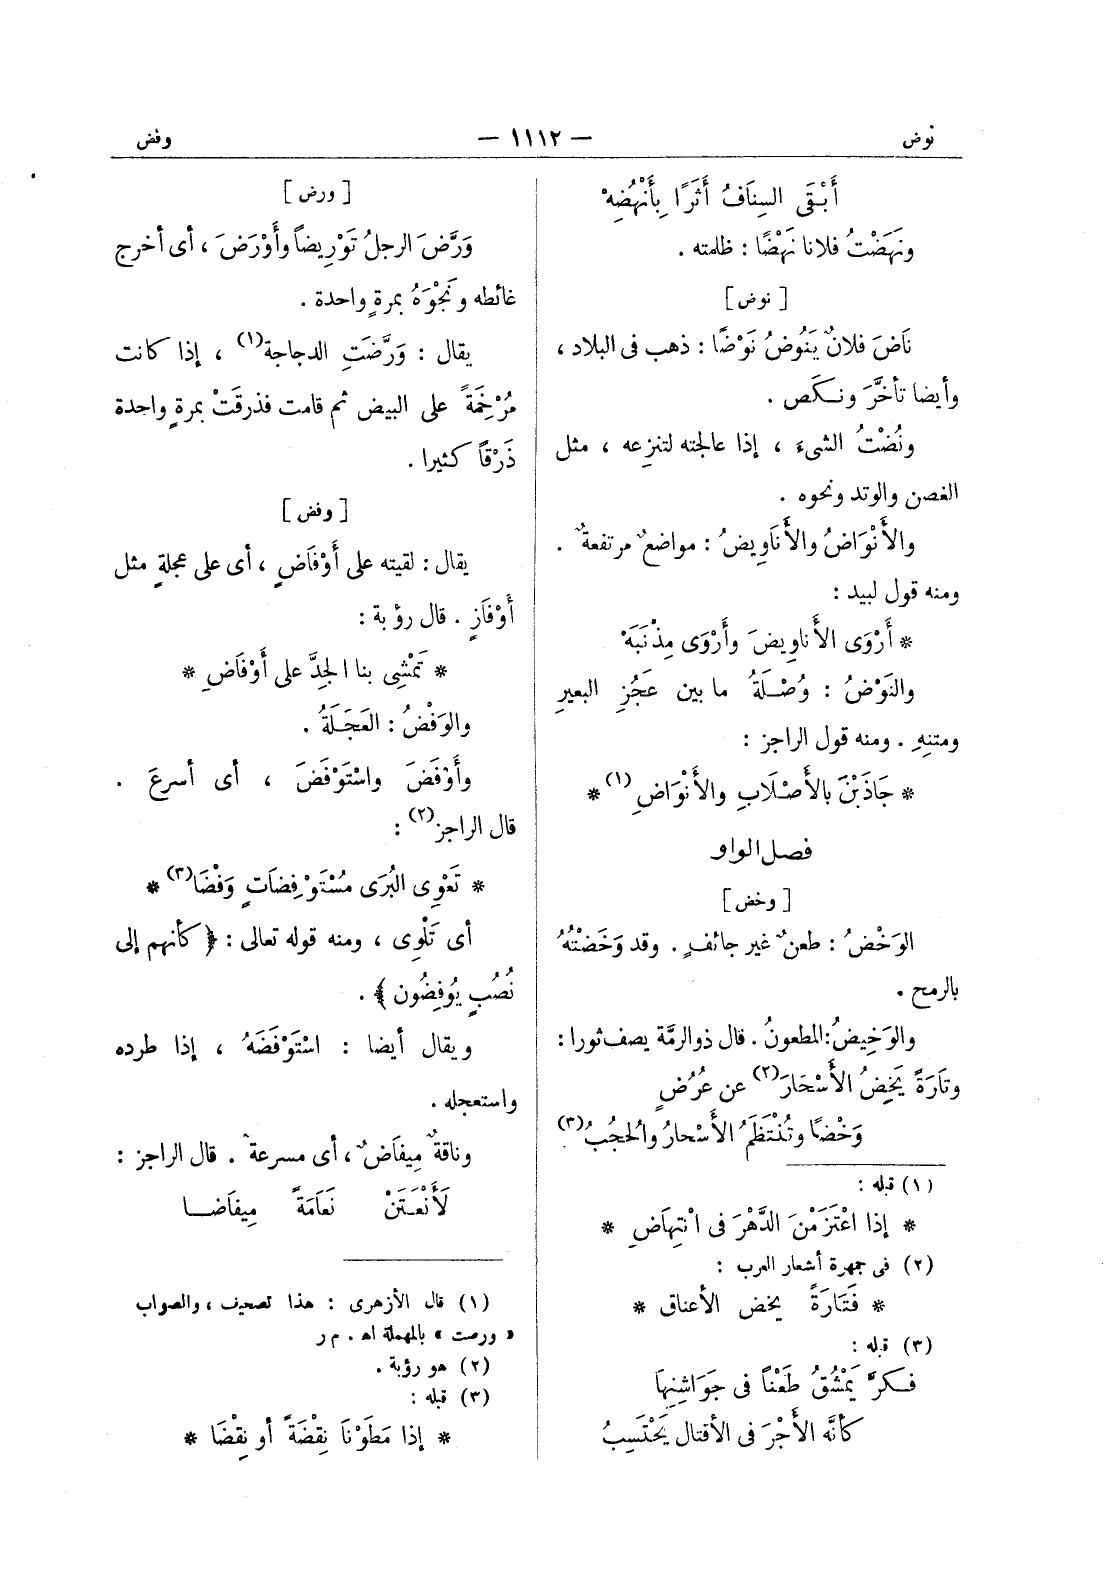 نوض — ١١١٢ — وفض
أَبْقَى السِنَافُ أَثَرًا بِأَنْهُضِهْ
ونَهَضْتُ فلانا نَهْضًا : ظلمته .
[ نوض ]
نَاضَ فلانٌ يَنُوضُ نَوْضًا : ذهب فى البلاد ،
وأيضا تأخَّرَ ونكَص .
ونُضْتُ الشىءَ ، إذا عالجته لتنزعه ، مثل
الغصن والوتد ونحوه .
والأَنْوَاضُ والأَنَاوِيضُ : مواضعٌ مرتفعةٌ .
ومنه قول لبيد :
* أَرْوَى الأَناوِيضَ وأَرْوَى مِذْنَبَهْ
والنَوْضُ : وُصْلَةُ ما بين عَجُزِ البعيرِ
ومتنِهِ . ومنه قول الراجز :
* جَاذَبْنَ بالأَصْلَابِ والأَنْوَاضِ (١) *
فصل الواو
[ وخض ]
الوَخْضُ : طعنٌ غير جائفٍ . وقد وَخَضْتُهُ
بالرمح .
والوَخِيضُ : المطعونُ . قال ذو الرمَّة يصف ثورا :
وتَارَةً يَخِضُ الأَسْحَارَ (٢) عن عُرُضٍ
وَخْضًا وتُنْتَظَمُ الأَسْحارُ والُحجُبُ (٣)
(١) قبله :
* إذا اعْتَزَمْنَ الدَّهْرَ فى انْتِهَاضِ *
(٢) فى جمهرة أشعار العرب :
* فَتَارَةً يخض الأعناق *
(٣) قبله :
فَكرَّ يَمْشُقُ طَعْناً فى جَوَاشِنِهَا
كأنّه الأَجْرَ فى الأقتال يَحْتَسِبُ
[ ورض ]
وَرَّضَ الرجلُ تَوْرِيضاً وأَوْرَضَ ، أى أخرج
غائطه ونَجْوَهُ بمرةٍ واحدة .
يقال : وَرَّضَتِ الدجاجة (١) ، إذا كانت
مُرْخِمَةً على البيض ثم قامت فذرقَتْ بمرةٍ واحدة
ذَرْقاً كثيرا .
[ وفض ]
يقال : لقيته على أَوْفَاضٍ ، أى على عجلةٍ مثل
أَوْفَازٍ . قال رؤبة :
* تَمْشِى بنا الجِدَّ على أَوْفَاضِ *
والوَفْضُ : العَجَلَةُ .
وأَوْفَضَ واسْتَوْفَضَ ، أى أسرعَ .
قال الراجز (٢) :
* تَعْوِى البُرَى مُسْتَوْفِضَاتٍ وَفْضَا (٣) *
أى تَلْوِى ، ومنه قوله تعالى : ﴿ كأنهم إلى
نُصُبٍ يُوفِضُون ﴾ .
ويقال أيضا : اسْتَوْفَضَهُ ، إذا طرده
واستعجله .
وناقةٌ مِيفَاضٌ ، أى مسرعةٌ . قال الراجز :
لَأَنْعَتَنْ نَعَامَةً مِيفَاضا
(١) قال الأزهرى : هذا تصحيف ، والصواب
« ورصت » بالمهملة اه . م ر
(٢) هو رؤبة .
(٣) قبله :
* إذا مَطَوْنَا نِقْضَةً أو نِقْضَا *